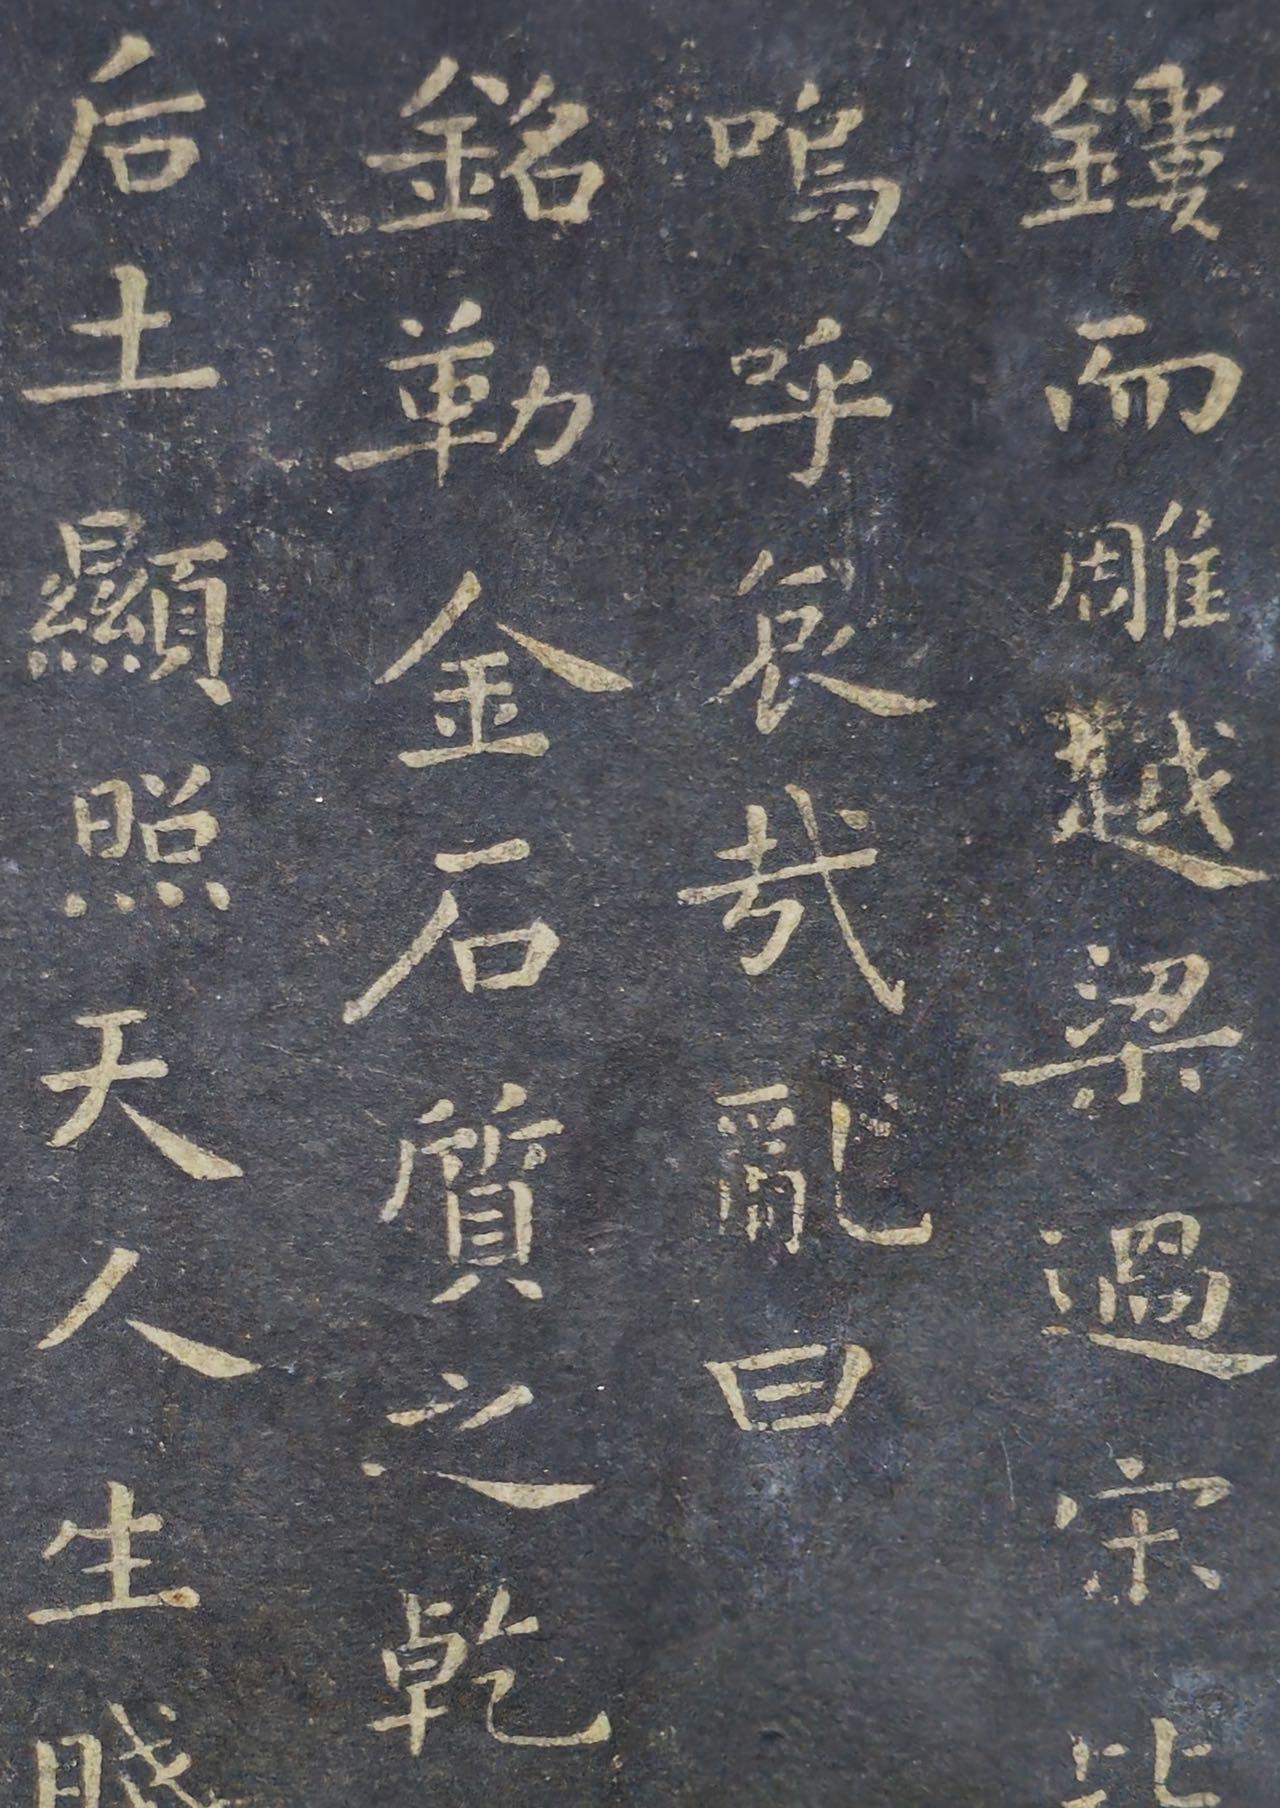 鏤而雕越梁過宋比
嗚呼哀哉亂曰
銘勒金石質之乾
后土顯照天人生賤